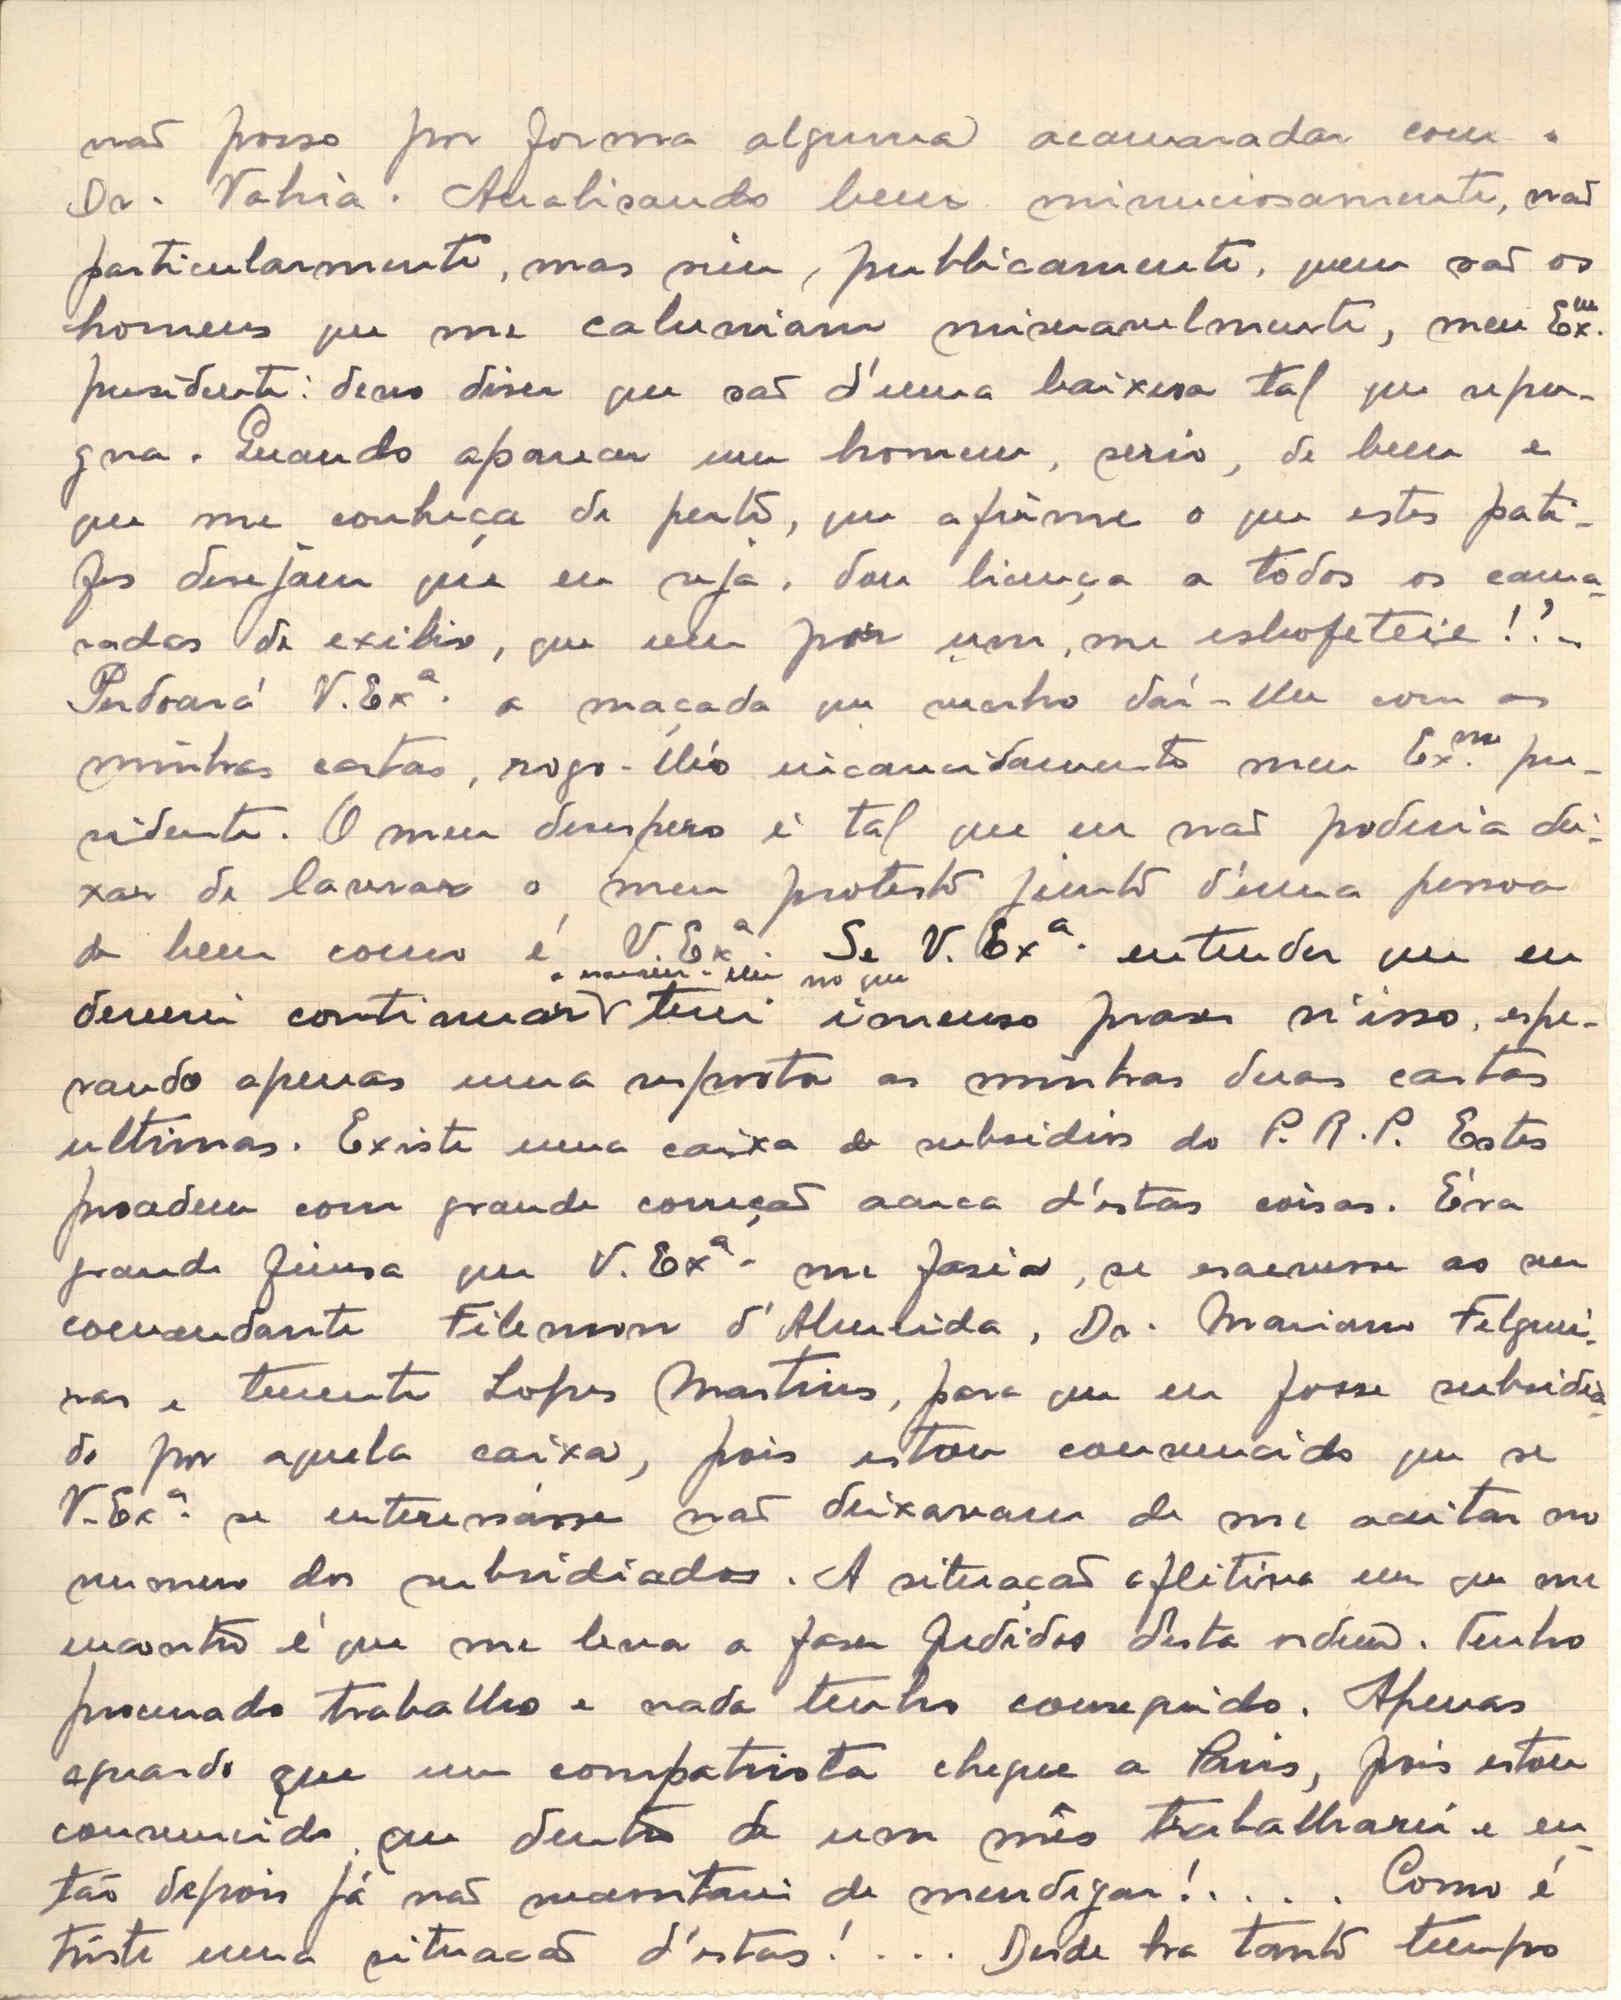 não posso por forma alguma acamaradar com o
Dr. Vahia. Analisando bem minuciosamente, não
particularmente, mas sim, publicamente, quem são os
homens que me caluniam miseravelmente, meu Ex.mo
presidente: devo diser que são d'uma baixesa tal que repu-
gna. Quando aparecer um homem, serio, de bem e
que me conheça de perto, que afirme o que estes pati-
fes desejam que eu seja, dou licença a todos os cama-
radas de exilio, que um por um, me esbofeteie!?..
Perdoará V. Exª. a maçada que venho dar-lhe com as
minhas cartas, rogo-lh'o encarecidamente meu Ex.mo pre-
sidente. O meu desespero é tal que eu não poderia dei-
xar de lavrar o meu protesto junto d'uma pessoa
de bem como é V. Exª. Se V. Exª. entender que eu
a escrever-lhe no que
deverei continuar terei imenso praser n'isso, espe-
rando apenas uma resposta as minhas duas cartas
ultimas. Existe uma caixa de subsidios do P. R. P. Estes
procedem com grande correção acerca d'estas coisas. Éra
grande finesa que V. Exª. me fasia, se escrevesse ao sr
comandante Filemon d'Almeida, Dr. Mariano Felguei-
ras e tenente Lopes Martins, para que eu fosse subsidia-
do por aquela caixa, pois estou convencido que se
V. Exª. se enteressásse não deixavam de me aceitar no
numero dos subsidiados. A situação aflitiva em que me
encontro é que me leva a faser pedidos desta ordem. Tenho
procurado trabalho e nada tenho conseguido. Apenas
aguardo que um compatriota chegue a Paris, pois estou
convencido que dentro de um mês trabalharei e en-
tão depois já não necessitarei de mendigar!.... Como é
triste uma situacão d'estas!.... Desde ha tanto tempo